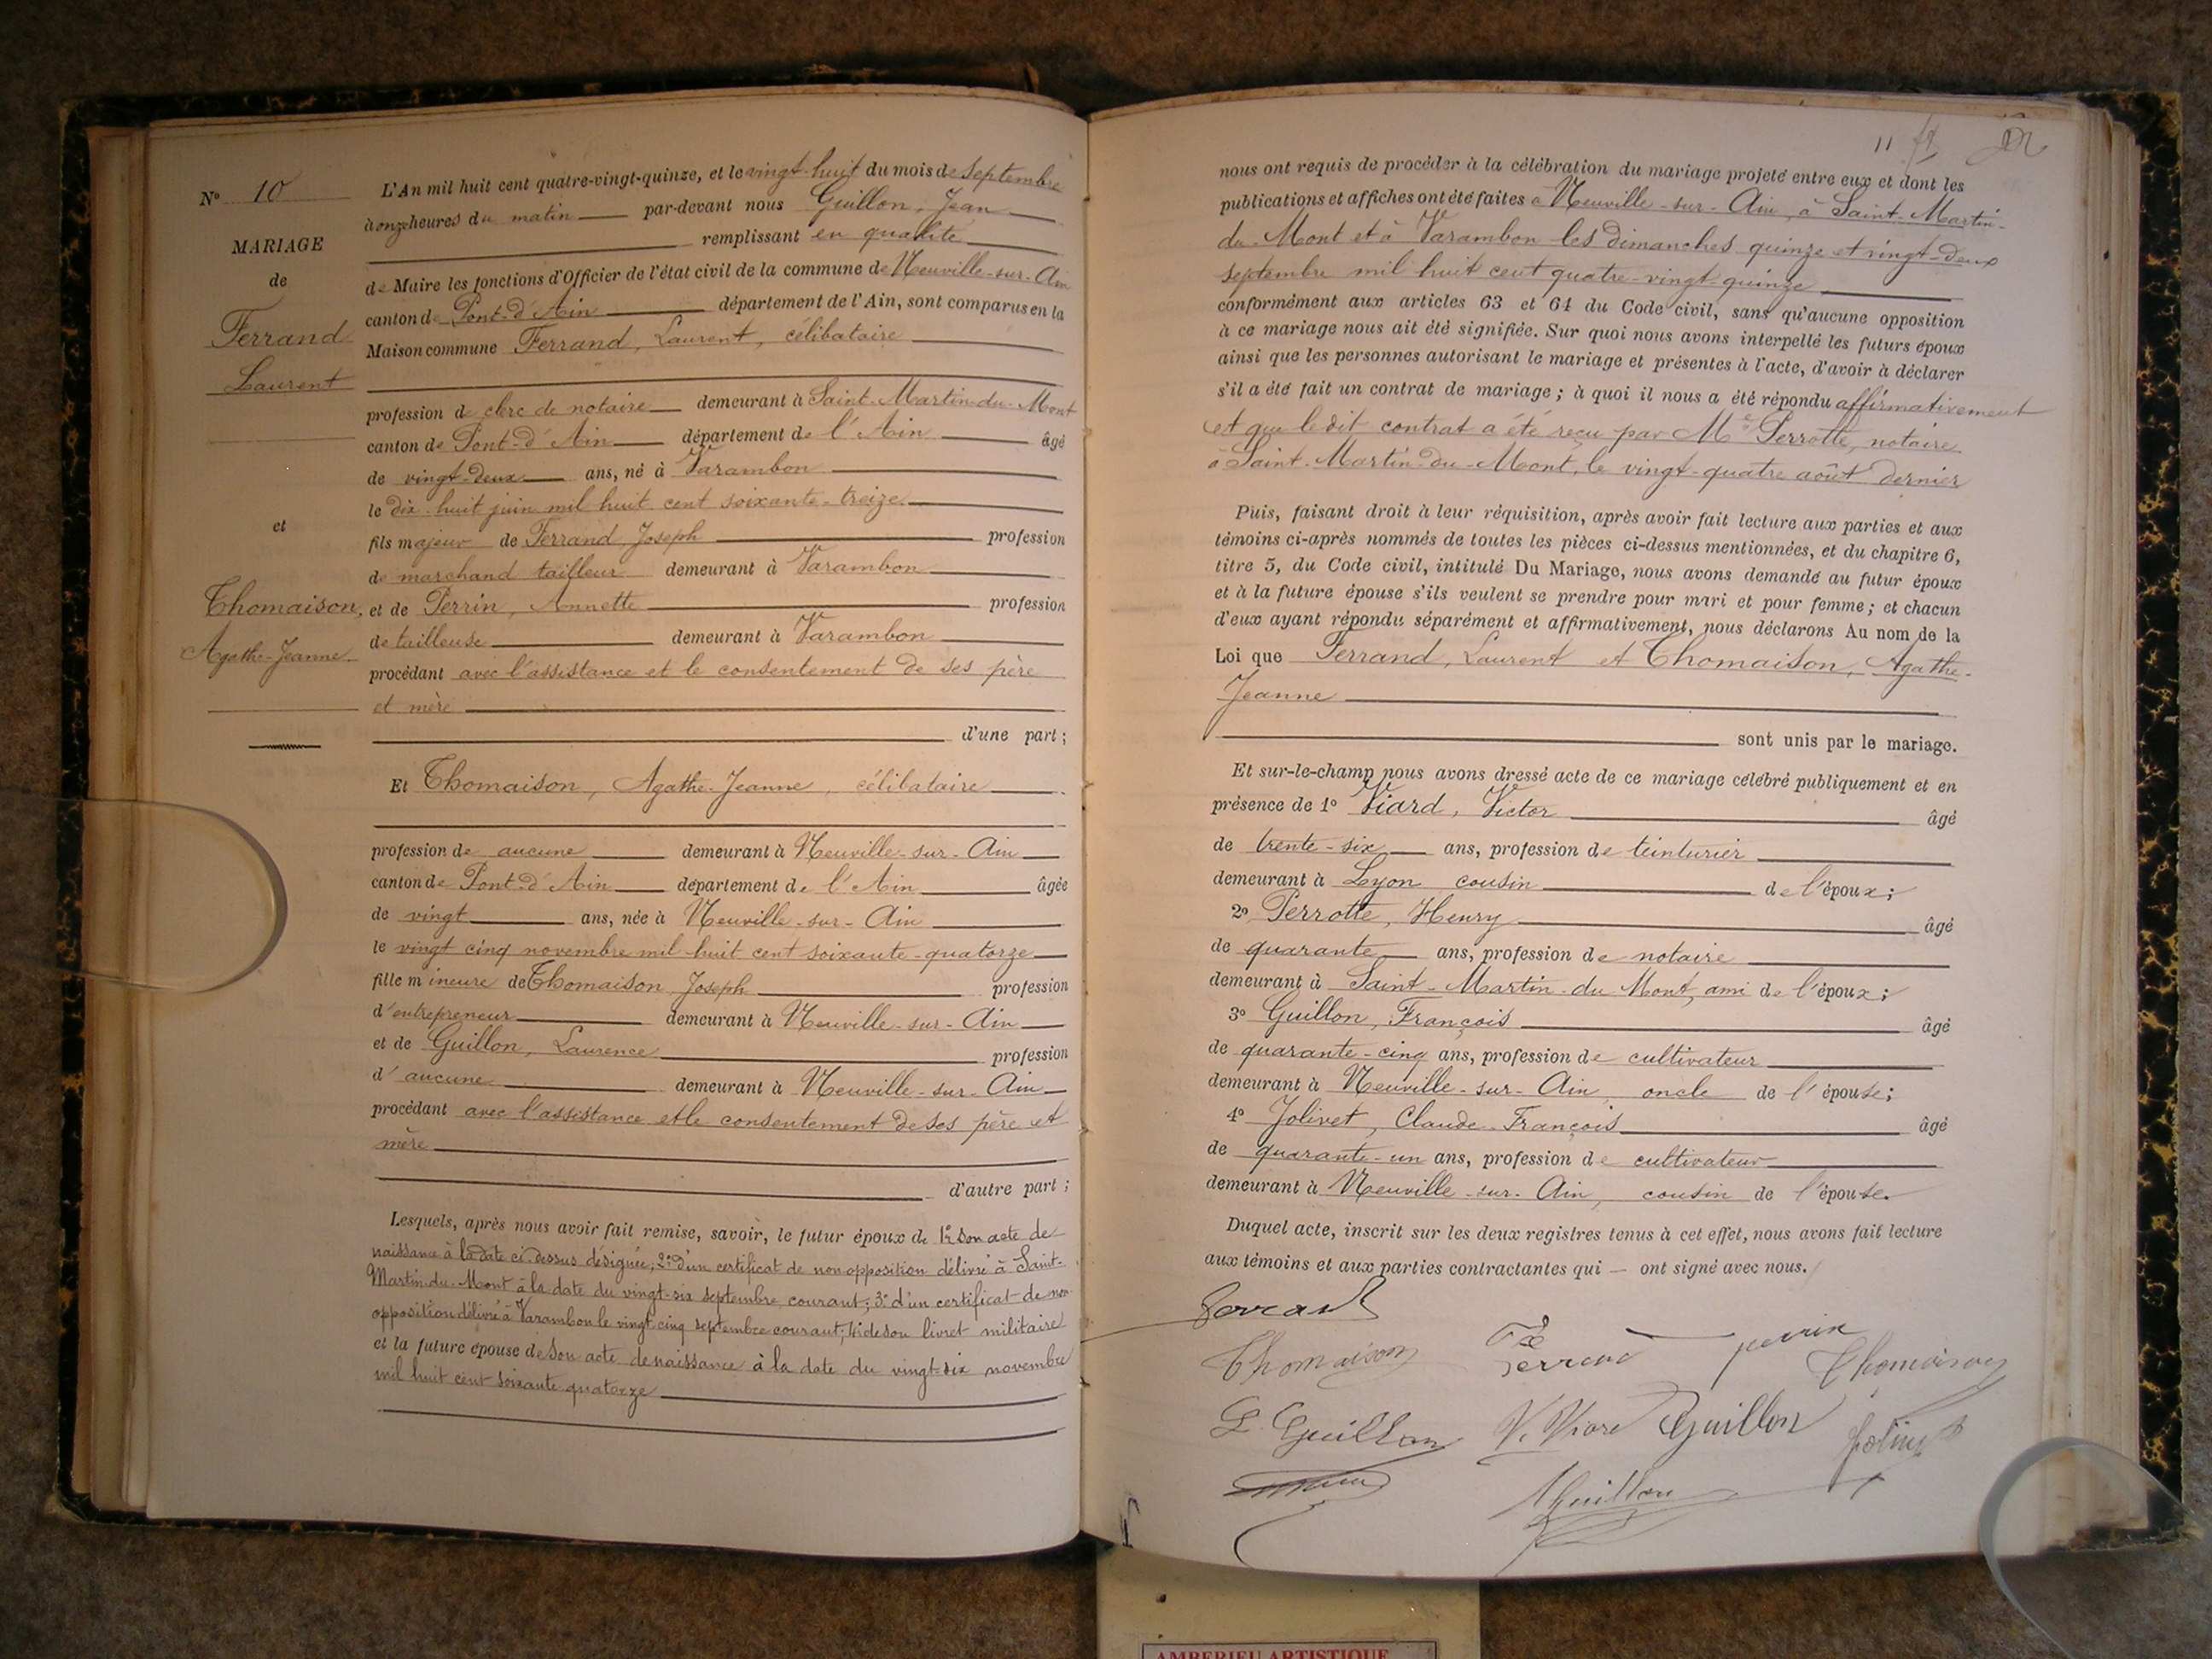 N° 10
MARIAGE
de
Ferrand
Laurent
et
Thomaison,
Agathe-Jeanne
L'An mil huit cent quatre-vingt-quinze, et le vingt-huit du mois de septembre
à onze heures du matin par-devant nous Guillon, Jean
remplissant en qualité
de Maire les fonctions d'Officier de l'état civil de la commune de Neuville-sur-Ain
canton de Pont-d'Ain département de l'Ain, sont comparus en la
Maison commune Ferrand, Laurent, célibataire
profession de clerc de notaire demeurant à Saint-Martin-du-Mont
canton de Pont-d'Ain département de l'Ain âgé
de vingt-deux ans, né à Varambon
le dix-huit juin mil huit cent soixante-treize
fils majeur de Ferrand, Joseph profession
de marchand tailleur demeurant à Varambon
et de Perrin, Annette profession
de tailleuse demeurant à Varambon
procédant avec l'assistance et le consentement de ses père
et mère
d'une part ;
Et Thomaison, Agathe-Jeanne, célibataire
profession de aucune demeurant à Neuville-sur-Ain
canton de Pont-d'Ain département de l'Ain âgée
de vingt ans, née à Neuville-sur-Ain
le vingt cinq novembre mil-huit cent soixante-quatorze
fille mineure de Thomaison, Joseph profession
d'entrepreneur demeurant à Neuville-sur-Ain
et de Guillon, Laurence profession
d'aucune demeurant à Neuville-sur-Ain
procédant avec l'assistance et le consentement de ses père et
mère
d'autre part ;
Lesquels, après nous avoir fait remise, savoir, le futur époux de 1° son acte de
naissance à la date ci-dessus désignée ; 2° d'un certificat de non opposition délivré à Saint-
Martin-du-Mont à la date du vingt-six septembre courant ; 3° d'un certificat de non
opposition délivré à Varambon le vingt cinq septembre courant ; 4° de son livret militaire
et la future épouse de son acte de naissance à la date du vingt-six novembre
mil huit cent soixante quatorze
11
nous ont requis de procéder à la célébration du mariage projeté entre eux et dont les
publications et affiches ont été faites à Neuville-sur-Ain, à Saint-Martin-
du-Mont et à Varambon les dimanches quinze et vingt-deux
septembre mil huit cent quatre-vingt-quinze
conformément aux articles 63 et 64 du Code civil, sans qu'aucune opposition
à ce mariage nous ait été signifiée. Sur quoi nous avons interpellé les futurs époux
ainsi que les personnes autorisant le mariage et présentes à l'acte, d'avoir à déclarer
s'il a été fait un contrat de mariage ; à quoi il nous a été répondu affirmativement
et que le dit contrat a été reçu par Me Perrotte, notaire
à Saint-Martin-du-Mont, le vingt-quatre août dernier
Puis, faisant droit à leur réquisition, après avoir fait lecture aux parties et aux
témoins ci-après nommés de toutes les pièces ci-dessus mentionnées, et du chapitre 6,
titre 5, du Code civil, intitulé Du Mariage, nous avons demandé au futur époux
et à la future épouse s'ils veulent se prendre pour mari et pour femme ; et chacun
d'eux ayant répondu séparément et affirmativement, nous déclarons Au nom de la
Loi que Ferrand, Laurent et Thomaison, Agathe-
Jeanne
sont unis par le mariage.
Et sur-le-champ nous avons dressé acte de ce mariage célébré publiquement et en
présence de 1° Viard, Victor âgé
de trente-six ans, profession de teinturier
demeurant à Lyon cousin de l'époux ;
2° Perrotte, Henry âgé
de quarante ans, profession de notaire
demeurant à Saint-Martin-du-Mont, ami de l'époux ;
3° Guillon, François âgé
de quarante-cinq ans, profession de cultivateur
demeurant à Neuville-sur-Ain, oncle de l'épouse ;
4° Jolivet, Claude-François âgé
de quarante-un ans, profession de cultivateur
demeurant à Neuville-sur-Ain, cousin de l'épouse.
Duquel acte, inscrit sur les deux registres tenus à cet effet, nous avons fait lecture
aux témoins et aux parties contractantes qui — ont signé avec nous.
Ferrand
Thomaison
Ferrand
perrin
Thomaison
L. Guillon
V. Viard
Guillon
Jolivet
Guillon
AMBERIEU ARTISTIQUE